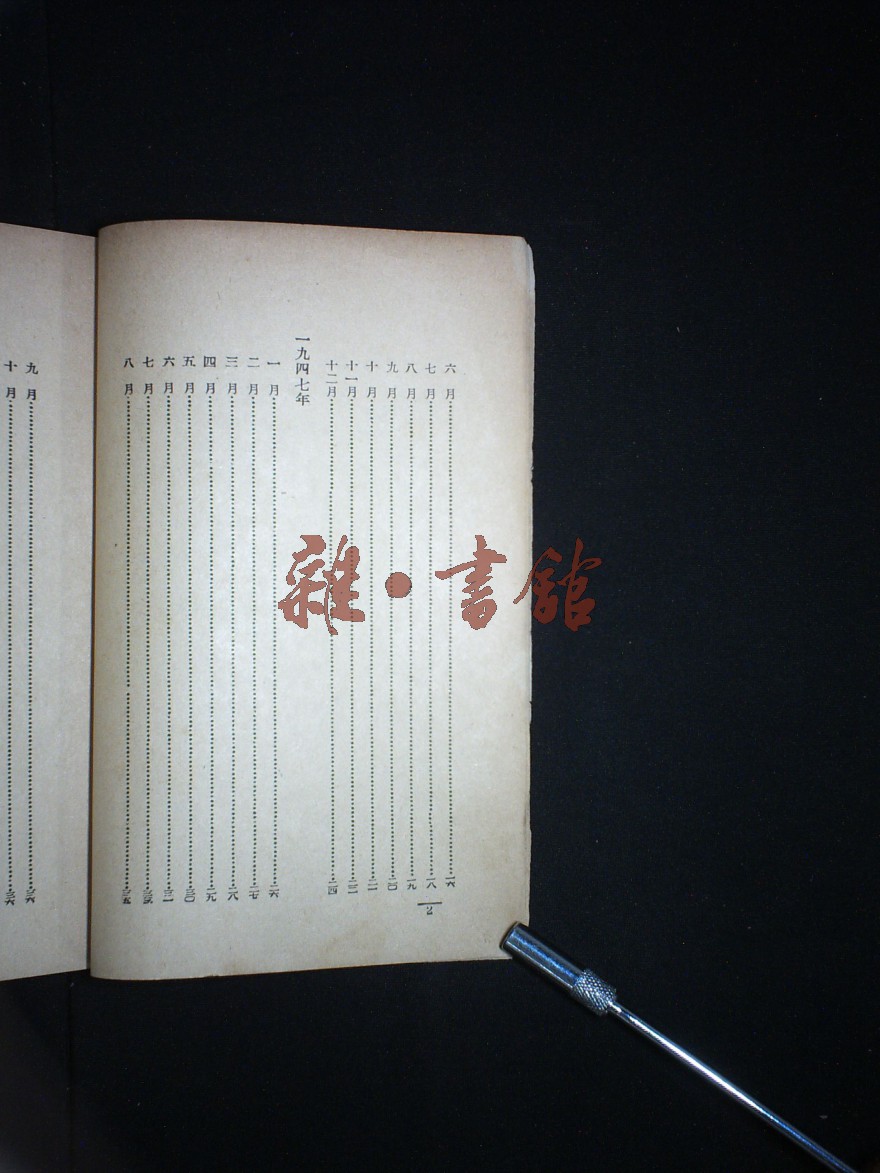 六月……一六
七月……一八
八月……一九
九月……二〇
十月……二一
十一月……二二
十二月……二四
一九四七年
一月……二六
二月……二七
三月……二八
四月……二九
五月……三〇
六月……三一
七月……
八月……三五
2
九月……三六
十月……三六
雜·書館